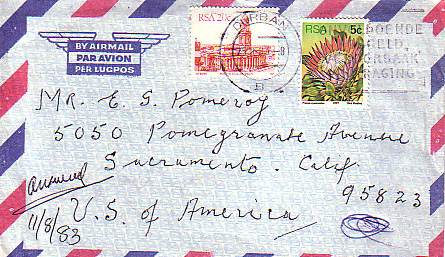 DURBAN
RSA 20c
RSA 5c
BY AIRMAIL
PAR AVION
PER LUGPOS
B
GELD
Mr. E. G. Pomeroy
5050 Pomegranate Avenue
Sacramento. Calif.
95823
U.S. of America
answered
11/8/83